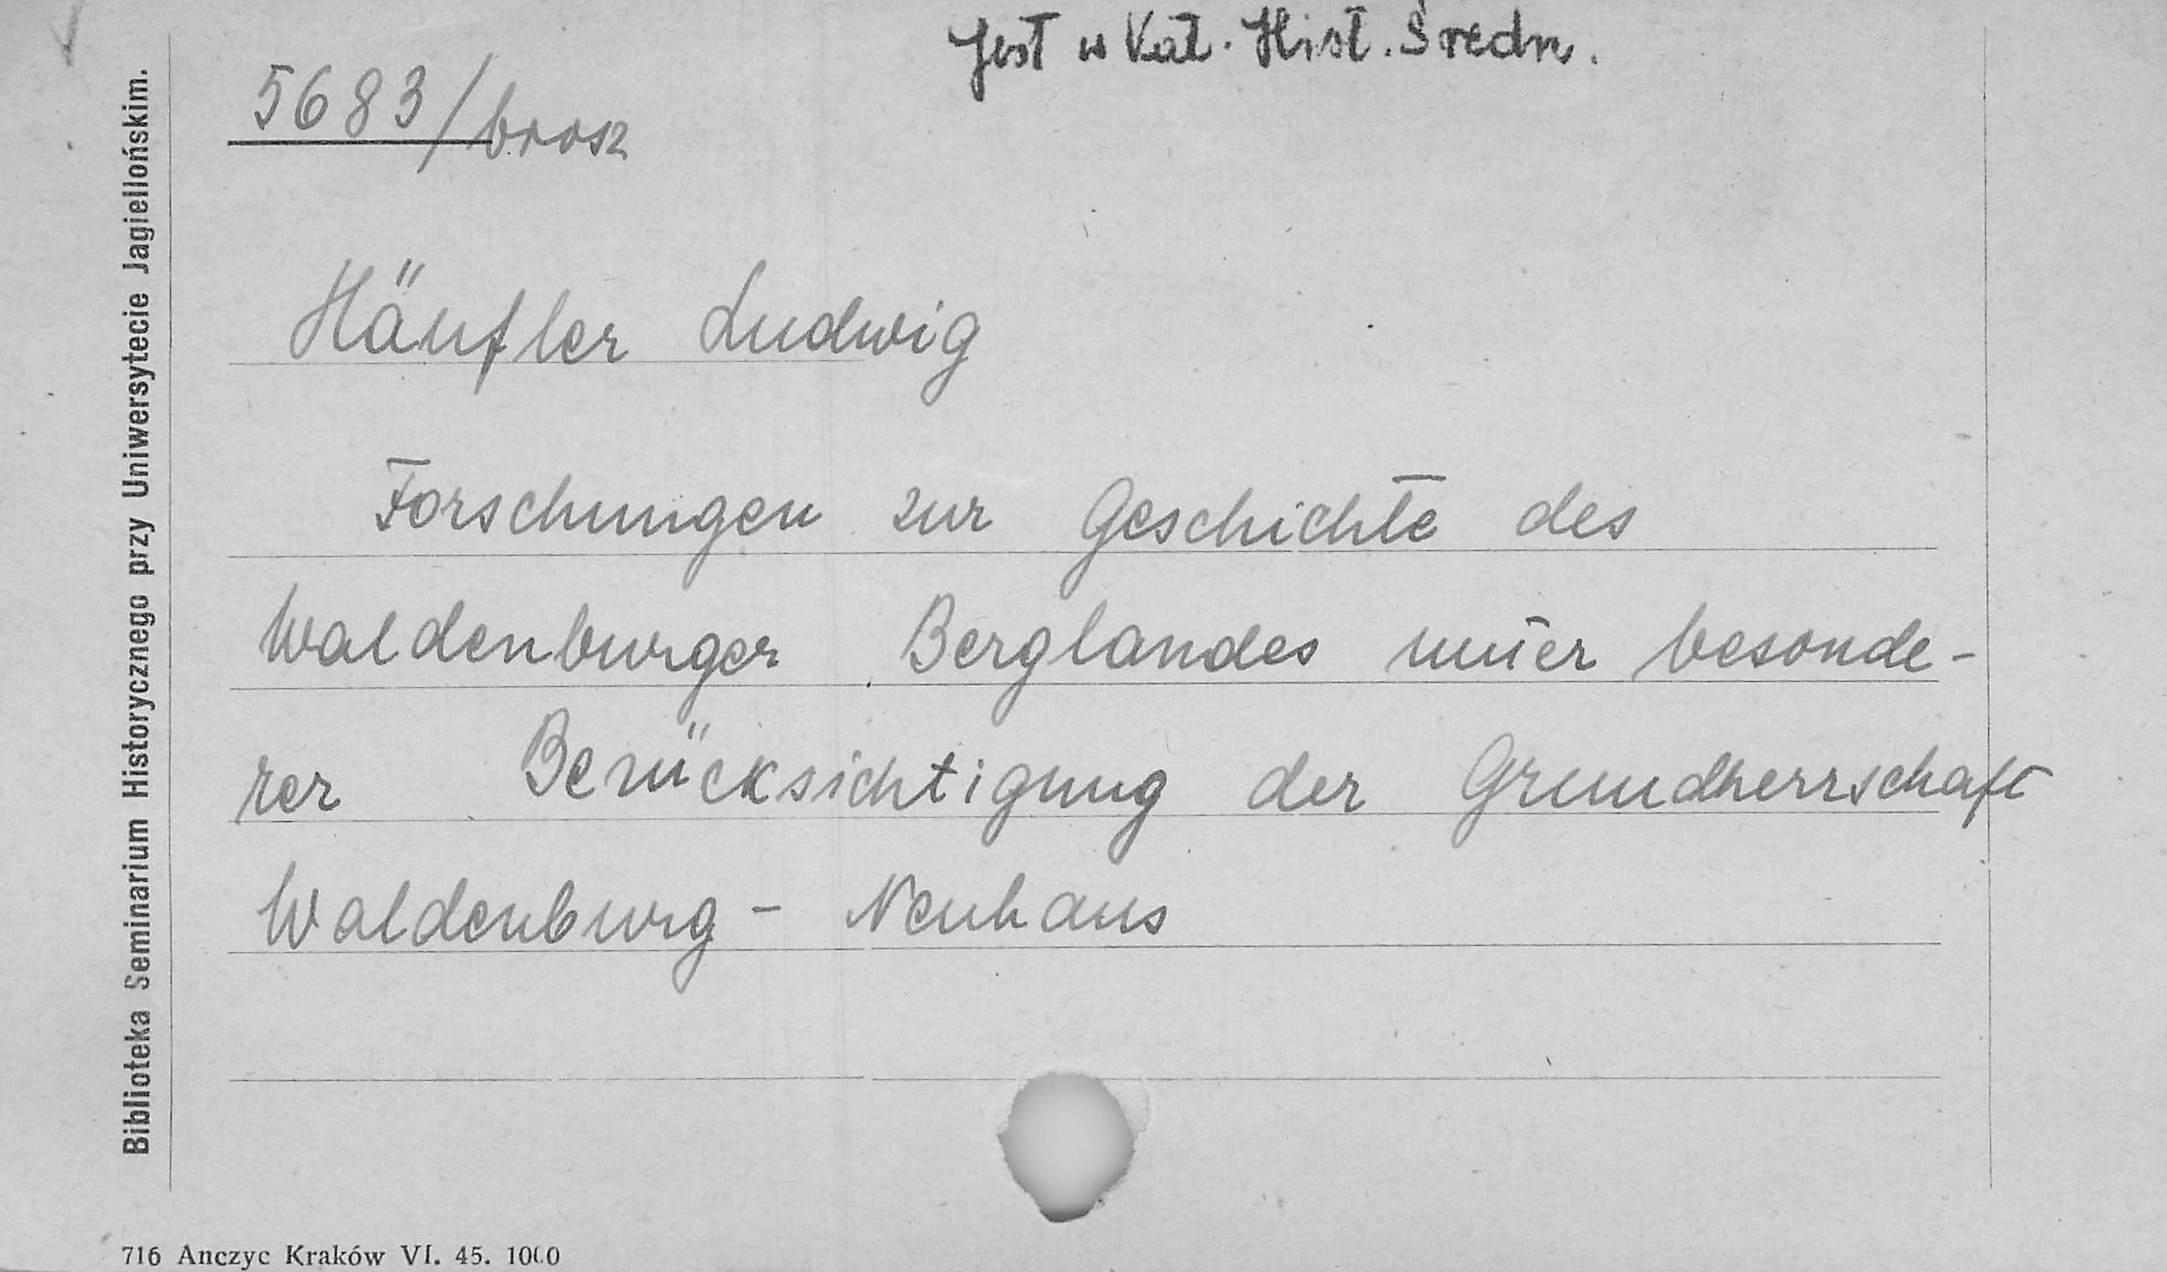 Jest w Kat. Hist. Średn.
5683/brosz
Häufler Ludwig
Forschungen zur Geschichte des
Waldenburger Berglandes unter besonde-
rer Berücksichtigung der Grundherrschaft
Waldenburg - Neuhaus
Biblioteka Seminarium Historycznego przy Uniwersytecie Jagiellońskim.
716 Anczyc Kraków VI. 45. 1000